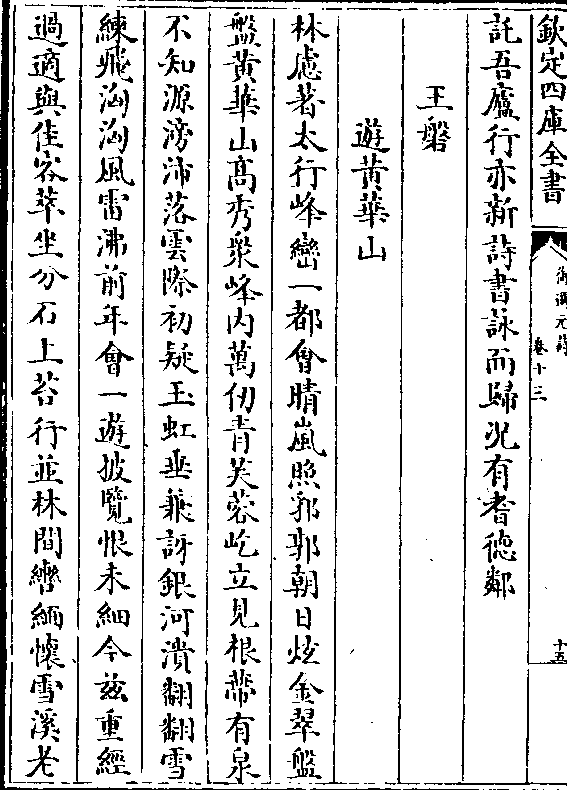 欽定四庫全書
御選元詩
卷十三
十五
託吾廬行亦新詩書詠而歸况有耆德鄰
王磐
遊黄華山
林慮著太行峰巒一都會晴嵐照郛郭朝日炫金翠盤
盤黄華山髙秀衆峰内萬仞青芙蓉屹立見根蔕有泉
不知源滂沛落雲際初疑玉虹垂兼訝銀河潰翻翻雪
練飛洶洶風雷沸前年曾一遊披覽恨未細今兹重經
過適與佳客萃坐分石上苔行並林間轡緬懷雪溪老